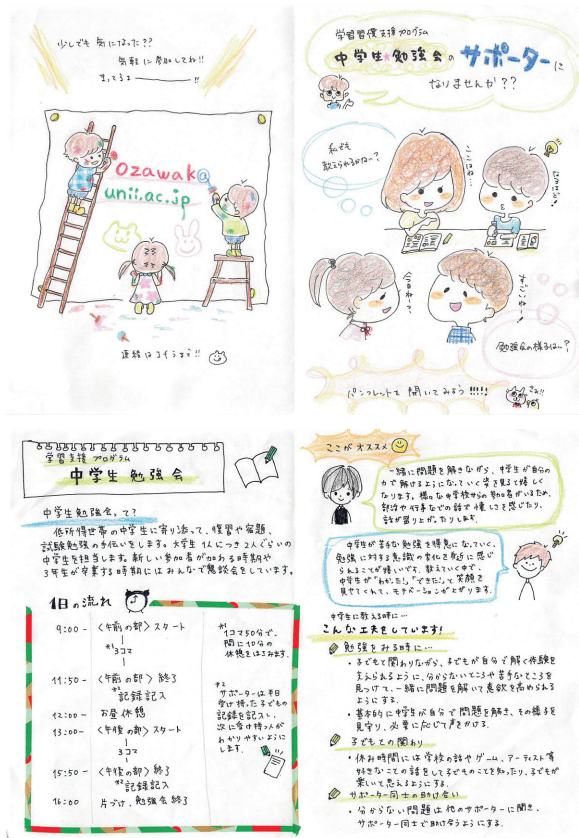 少しでも 気になった??
気軽に参加してね!!
まってるよ ―――― !!
ozawak@
unii.ac.jp
連絡はコチラまで!!
学習習慣支援プログラム
中学生★勉強会の サポーターに
なりませんか??
私でも
教えられるかな〜?
ここはね…
なるほど!
今日ね〜って、
なになに〜!
勉強会の様子は…?
パンフレットを開いてみよう!!!!!
学習支援プログラム
中学生 勉強会
中学生勉強会、って?
低所得世帯の中学生に寄り添って、復習や宿題、
試験勉強の手伝いをします。大学生1人につき2人ぐらいの
中学生を担当します。新しい参加者が加わる時期や
3年生が卒業する時期にはみんなで懇談会をしています。
1日の流れ
9:00- 〈午前の部〉スタート
*1
3コマ
11:50- 〈午前の部〉終了
*2
記録記入
12:00- お昼休憩
13:00- 〈午後の部〉スタート
3コマ
15:50- 〈午後の部〉終了
*2
記録記入
16:00 片づけ、勉強会終了
*1
1コマ50分で、
間に10分の
休憩をはさみます。
*2
サポーターは半日
受け持った子どもの
記録を記入し、
次に受け持つ人が
わかりやすいように
します。
ここがオススメ
一緒に問題を解きながら、中学生が自分の
力で解けるようになっていく姿を見ると嬉しく
なります。様々な中学校からの参加者がいるため、
部活や行事などの話で懐しさを感じたり、
話が盛り上がったりします。
中学生が苦手な勉強を得意になっていく、
勉強に対する意識の変化を身近に感じ
られることが嬉しいです。教えていく中で、
中学生が"わかった""できた"って笑顔を
見せてくれて、モチベーションが上がります。
中学生に教える時に…
こんな工夫をしています!
勉強をみる時に…
・子どもと関わりながら、子どもが自分で解く体験を
支えられるように、分からないところや苦手なところを
見つけて、一緒に問題を解いて意欲を高められる
ようにする。
・基本的に中学生が自分で問題を解き、その様子を
見守り、必要に応じて声をかける。
子どもとの関わり
・休み時間には学校の話やゲーム、アーティスト等
好きなことの話をして子どものことを知ったり、子どもが
楽しいと思えるようにする。
サポーター同士の助け合い
・分からない問題は他のサポーターに聞き、
サポーター同士で助け合うようにする。